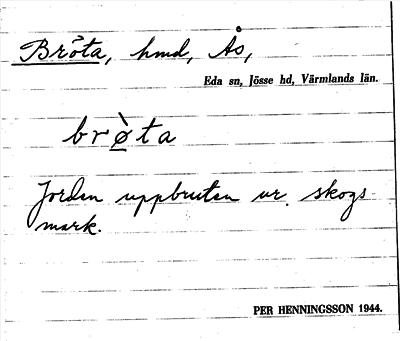 Bröta, hmd, Ås,
Eda sn, Jösse hd, Värmlands län.
brø̀ta
Jorden uppbruten ur skogs
mark.
PER HENNINGSSON 1944.